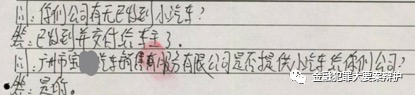 问:你们公司有无已收到小汽车?
答:已收到并交付给车主了.
问:广州市宝 汽车销售有限公司是否提供小汽车给你们公司?
答:是的.
金融犯罪大要案辩护